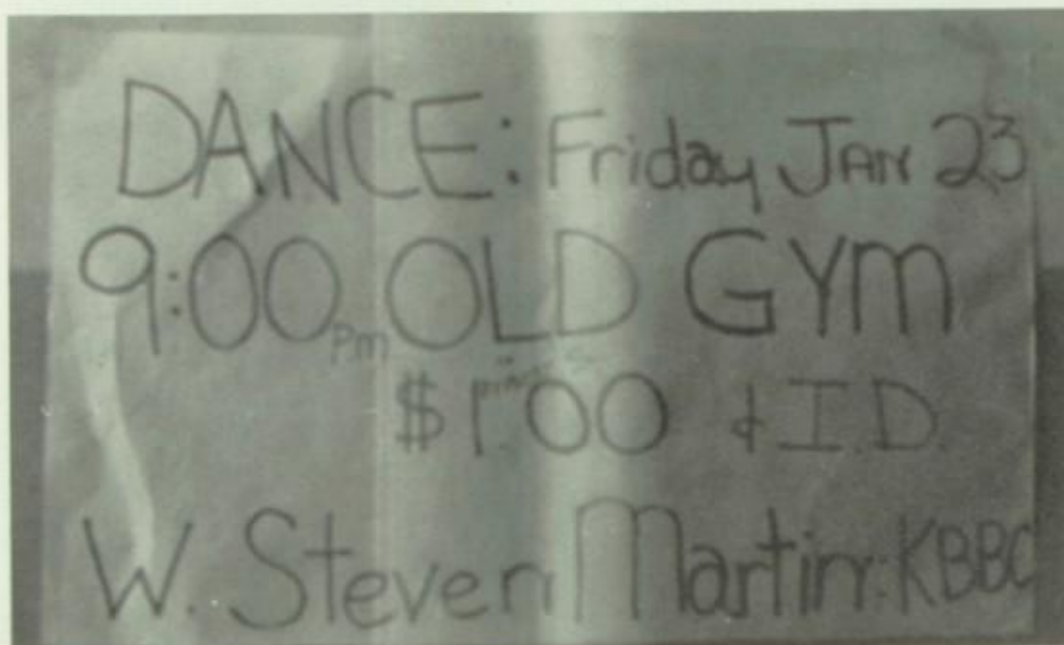 DANCE: Friday JAN 23
9:00 pm OLD GYM
$1.00 & I.D.
W. Steven Martin: KBBC